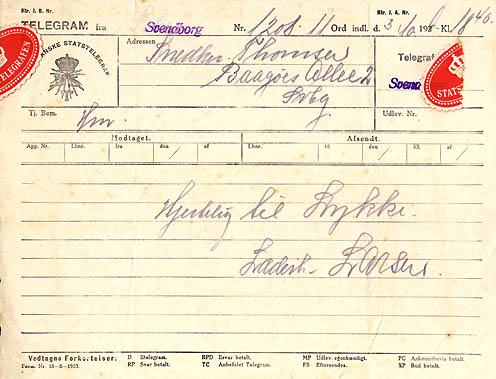 Ktr. J. B. Nr.
TELEGRAM fra Svendborg Nr. 1208. 11 Ord indl. d. 3/10 192 Kl. 1840
Ktr. J. A. Nr.
DANSKE STATSTELEGRAF
TELEGRAFEN
Adressen
Snedkr. Thomsen
Baagøes Allee 2
Svbg
Telegraf
Svend
STATS
Tj. Bem.
Hm.
Udlev. Nr.
Modtaget. Afsendt.
App. Nr. Lbnr. fra den / af Lbnr. til den / Kl. af
Hjertelig til Lykke.
Larsen.
Vedtagne Forkortelser.
Form. Nr. 18 -8-1923.
D Iltelegram. RPD Ilsvar betalt. MP Udlev. egenhændigt. PC Ankomstbevis betalt.
RP Svar betalt. TC Anbefalet Telegram. FS Eftersendes. XP Bud betalt.